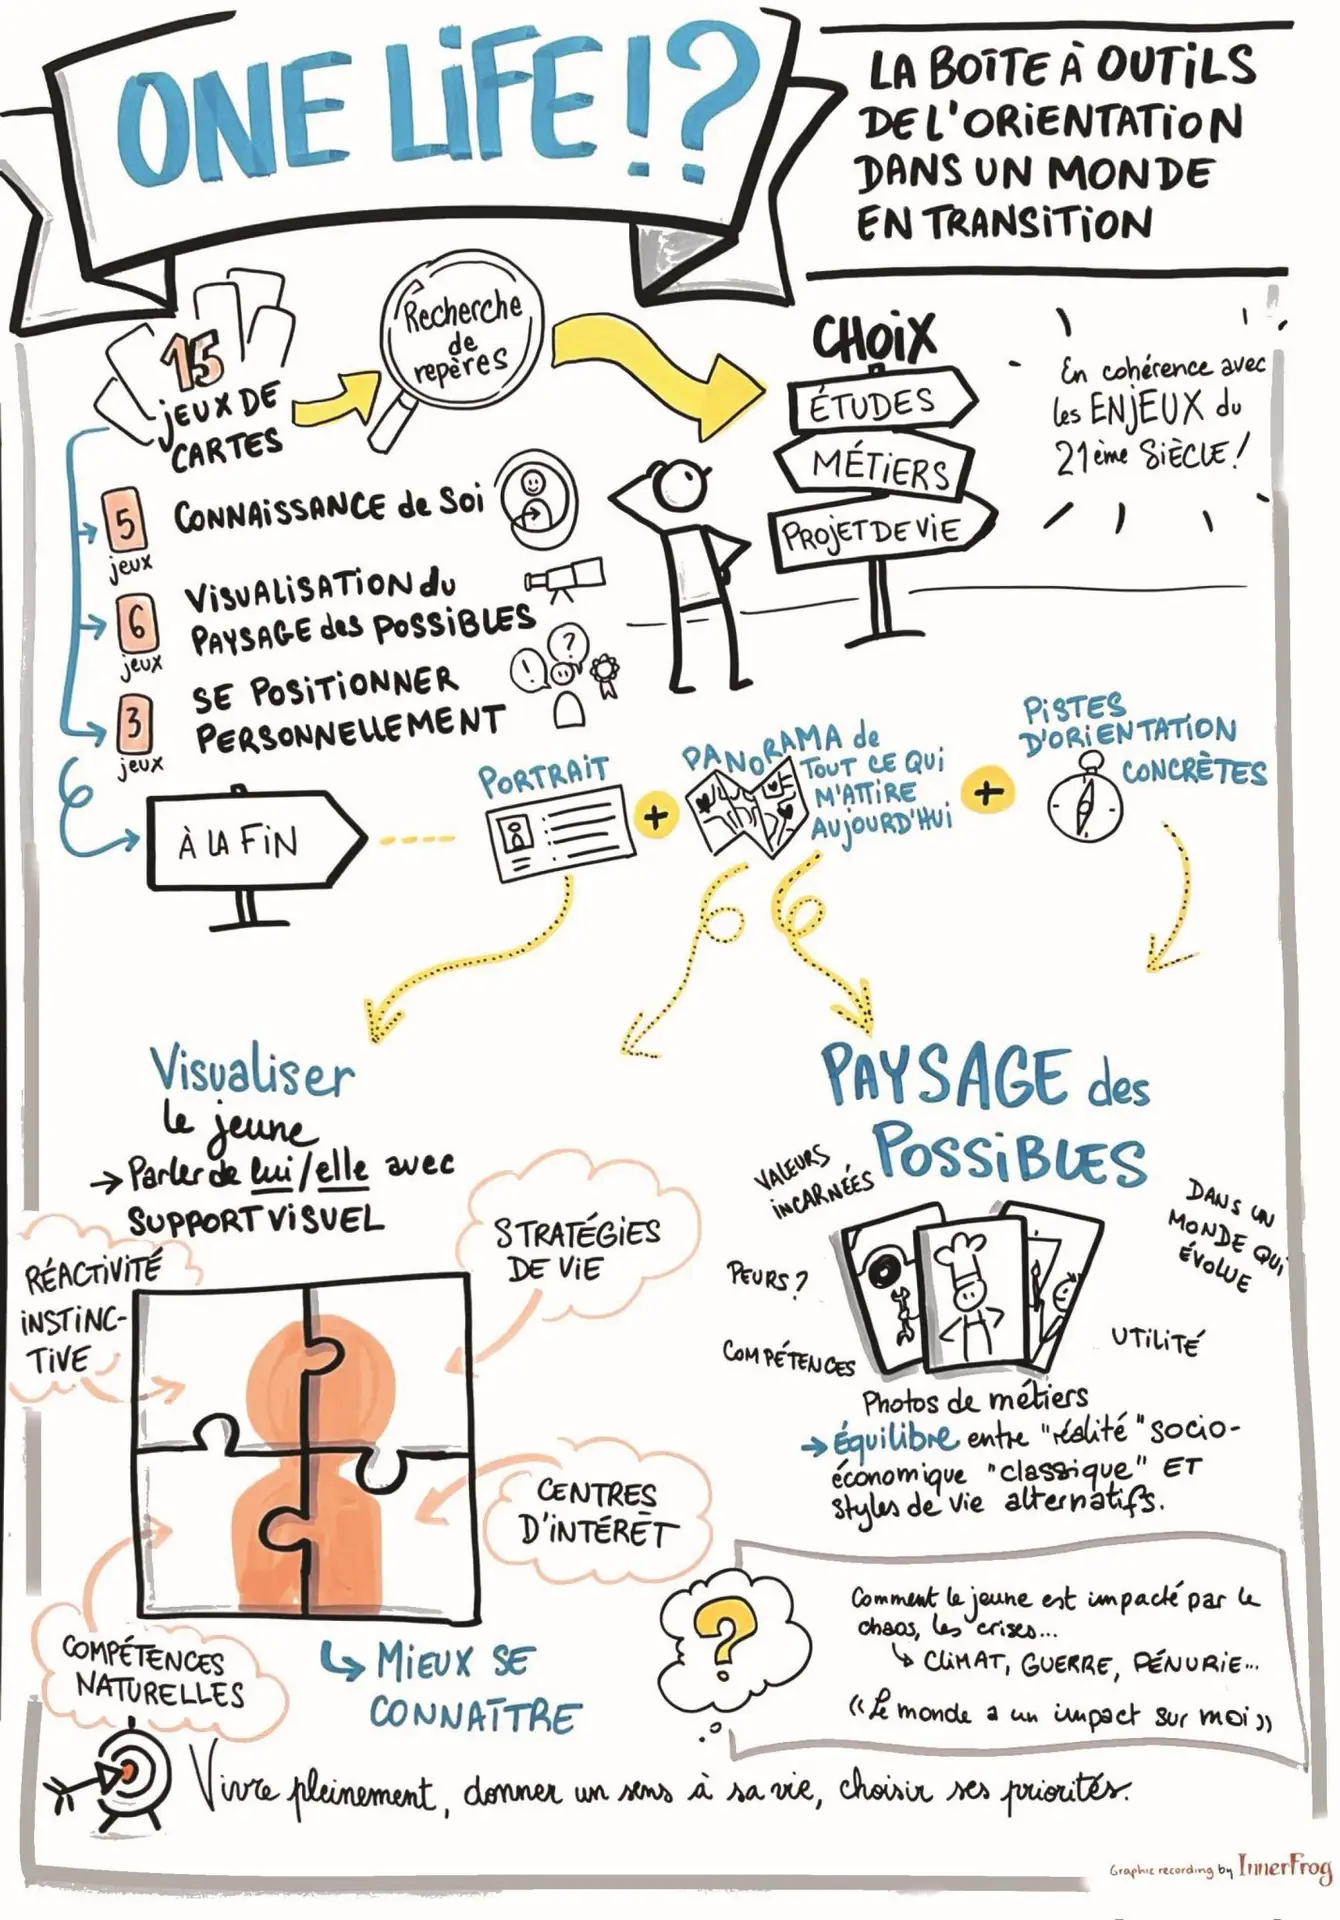 ONE LiFE!?
LA BOÎTE À OUTiLS
DE L'ORiENTATiON
DANS UN MONDE
EN TRANSiTiON
15
jEUX DE
CARTES
Recherche
de
repères
CHOiX
ÉTUDES
MÉTiERS
PROjET DE ViE
En cohérence avec
les ENjEUX du
21ème SiÈCLE!
5
jeux
CONNAiSSANCE de Soi
6
jeux
ViSUALiSATiON du
PAYSAGE des POSSiBLES
3
jeux
SE POSiTiONNER
PERSONNELLEMENT
?
!
À LA FiN
PORTRAiT
+
PANORAMA de
TOUT CE QUi
M'ATTiRE
AUjOURD'HUi
+
PiSTES
D'ORiENTATiON
CONCRÈTES
Visualiser
le jeune
→ Parler de lui/elle avec
SUPPORT ViSUEL
RÉACTiViTÉ
iNSTiNC-
TiVE
STRATÉGiES
DE ViE
CENTRES
D'iNTÉRÊT
COMPÉTENCES
NATURELLES
↳ MiEUX SE
CONNAÎTRE
PAYSAGE des
POSSiBLES
VALEURS
iNCARNÉES
PEURS?
COMPÉTENCES
DANS UN
MONDE QUi
ÉVOLUE
UTiLiTÉ
Photos de métiers
→ Équilibre entre "réalité" socio-
économique "classique" ET
styles de vie alternatifs.
?
Comment le jeune est impacté par le
chaos, les crises...
↳ CLiMAT, GUERRE, PÉNURiE...
«Le monde a un impact sur moi»
Vivre pleinement, donner un sens à sa vie, choisir ses priorités.
Graphic recording by InnerFrog